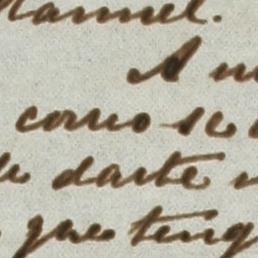 Manuel.
A
como se
darte
que teng